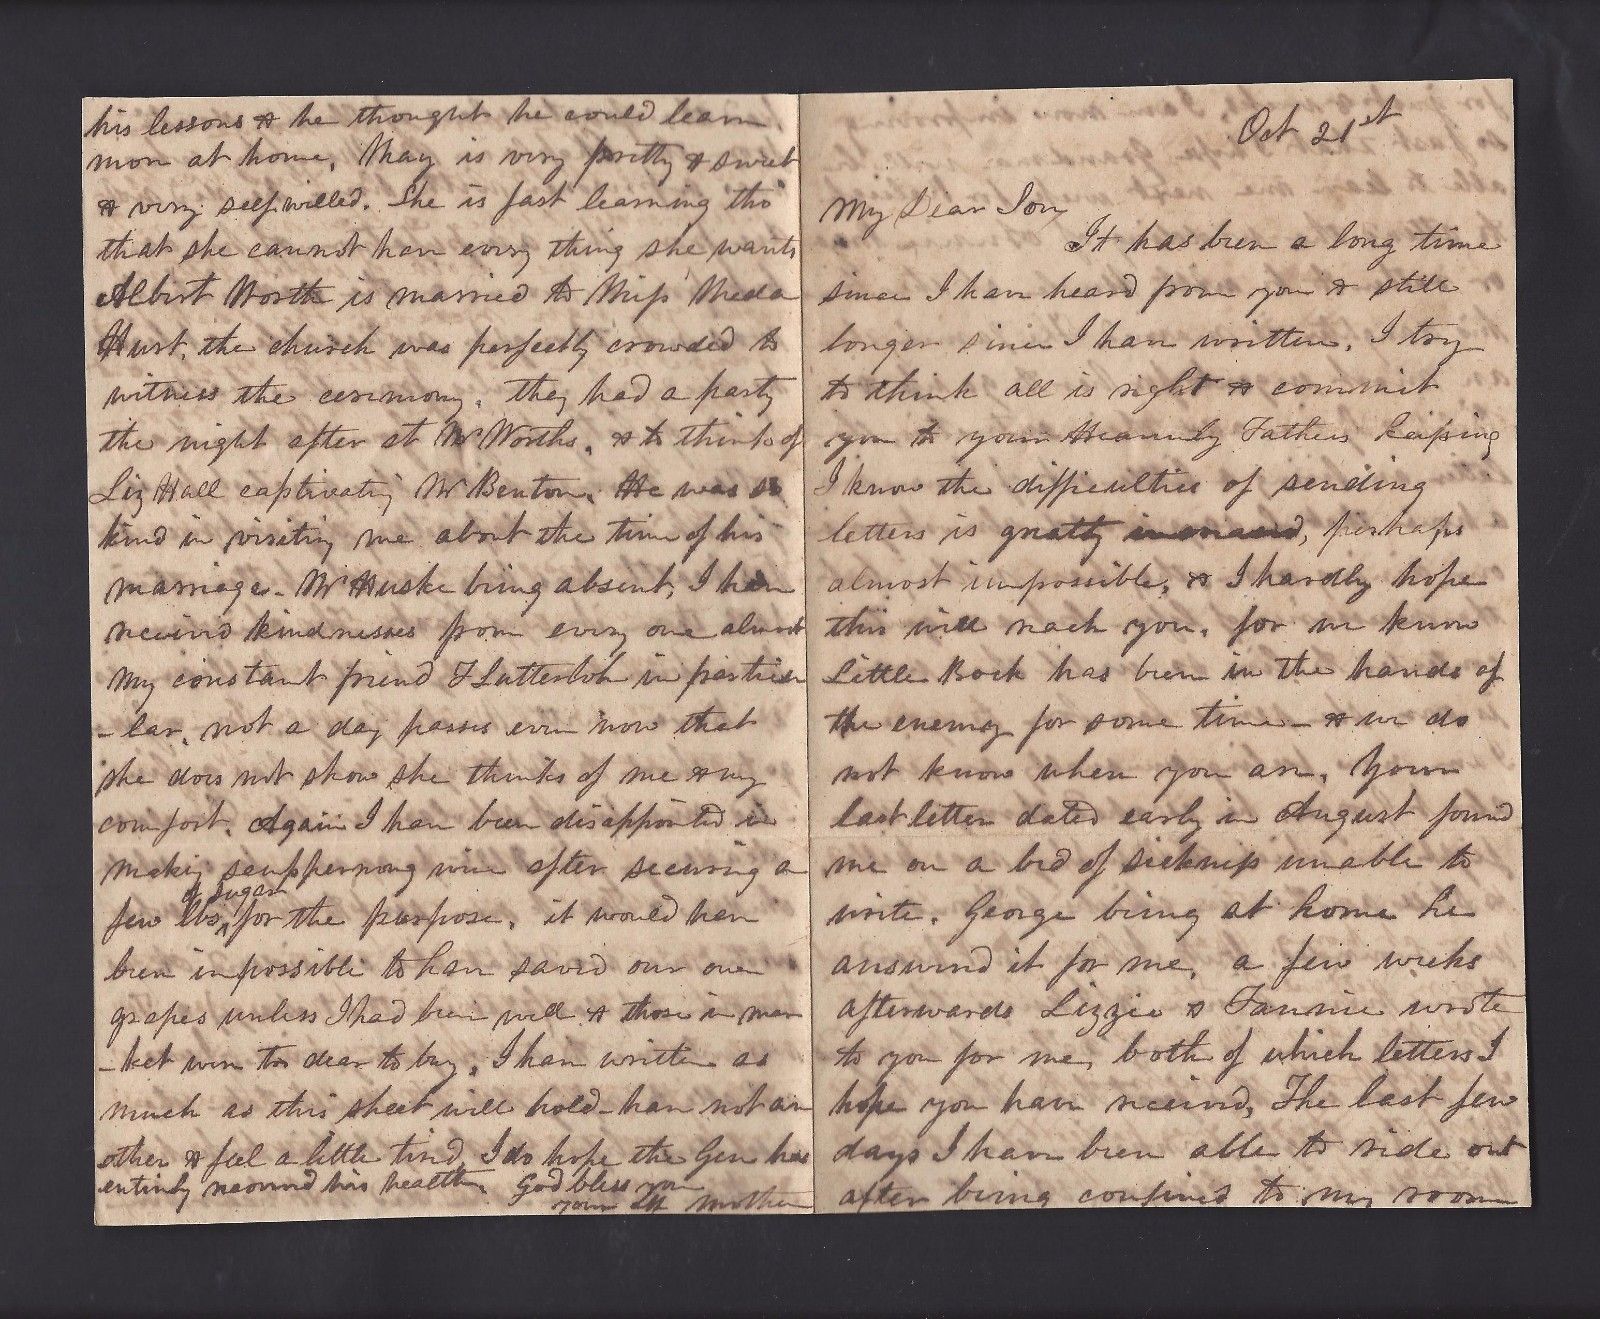 Oct 21st
My Dear Son,
It has been a long time
since I have heard from you & still
longer since I have written. I try
to think all is right & commit
you to your Heavenly Fathers keeping
I know the difficulties of sending
letters is greatly increased, perhaps
almost impossible, & I hardly hope
this will reach you, for we know
Little Rock has been in the hands of
the enemy for some time - & we do
not know where you are. Your
last letter dated early in August found
me on a bed of sickness unable to
write. George being at home he
answered it for me, a few weeks
afterwards Lizzie & Fannie wrote
to you for me, both of which letters I
hope you have received, The last few
days I have been able to ride out
after being confined to my room
his lessons & he thought he could learn
more at home. May is very pretty & sweet
& very self willed. She is fast learning tho'
that she cannot have every thing she wants
Albert Worth is married to Miss Meda
Hurt, the church was perfectly crowded to
witness the ceremony. they had a party
the night after at Mr Worths. & to think of
Liz Hall captivating Mr Benton. He was so
kind in visiting me about the time of his
marriage - Mr Huske being absent, I have
received kindnesses from every one almost
My constant friend F Lutterloh in particu
-lar. not a day passes even now that
she does not show she thinks of me & my
comfort. Again I have been disappointed in
making scuppernong wine after securing a
few lbs of sugar for the purpose. it would have
been impossible to have saved our own
grapes unless I had been well & those in mar
-ket were too dear to buy. I have written as
much as this sheet will hold - have not an
other & feel a little tired. I do hope the Gen has
entirely recovered his health. God bless you
your aff mother